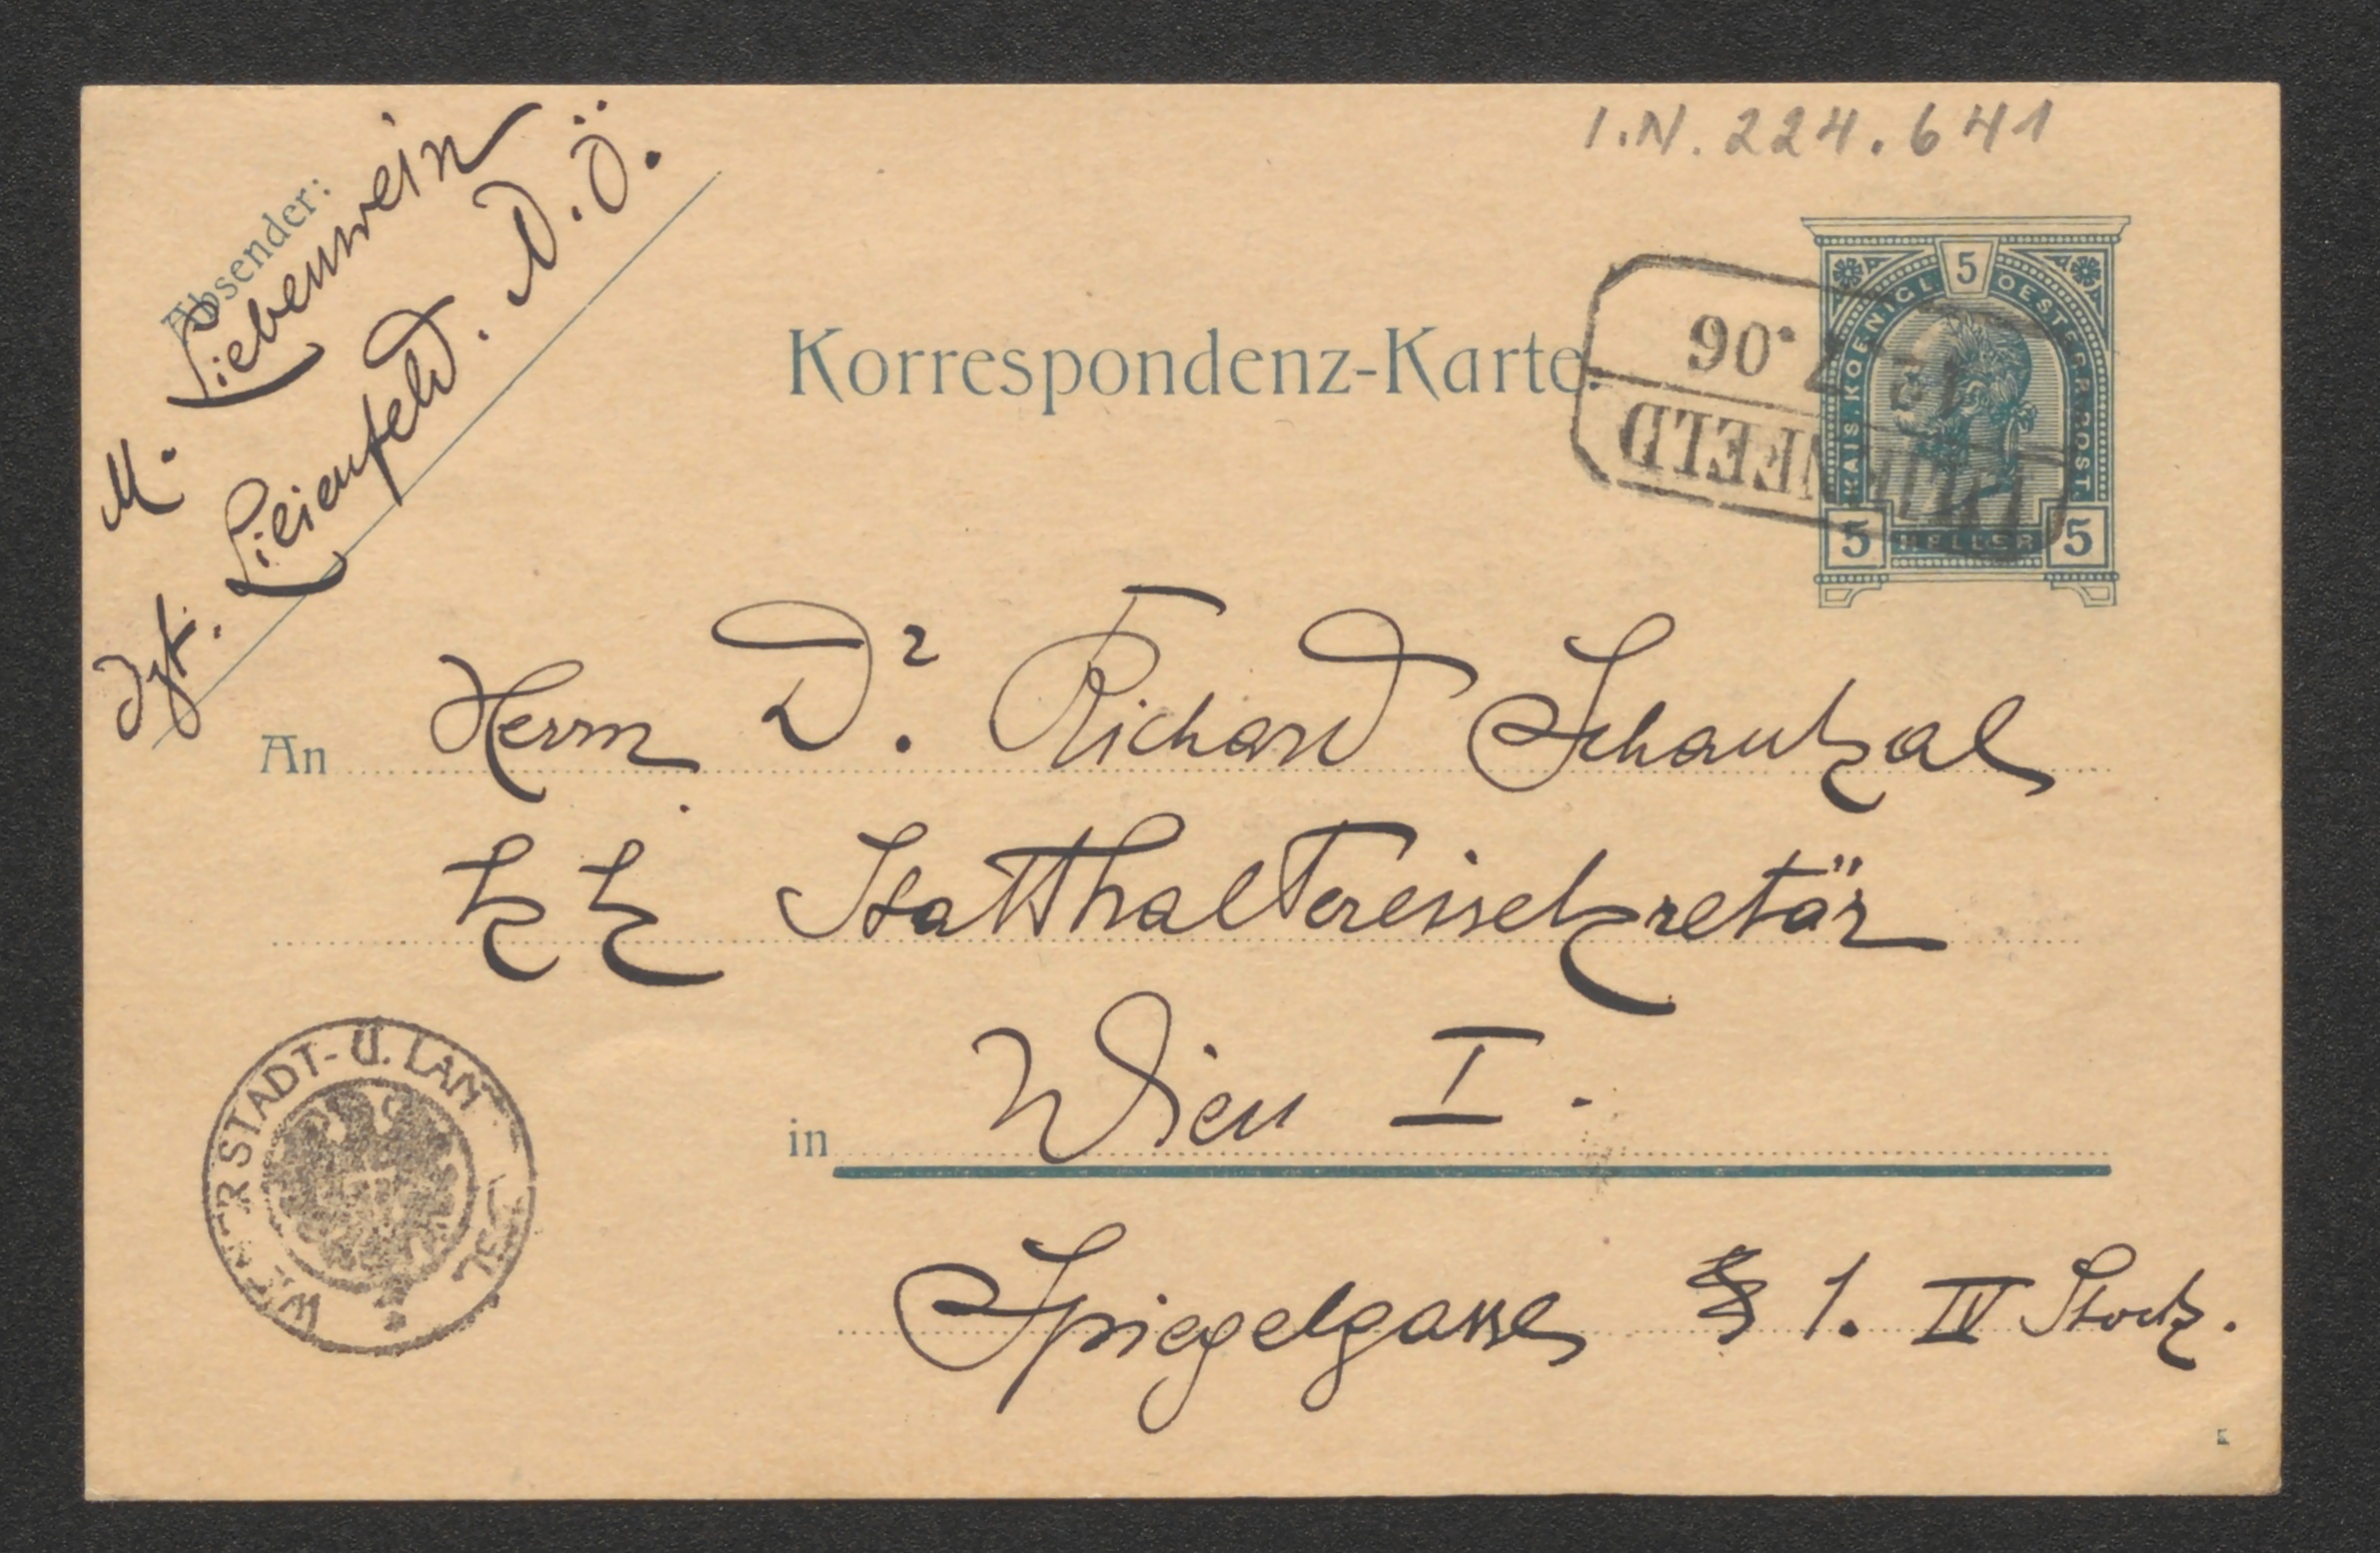 I.N. 224.641
Absender:
M. Liebenwein
dzt. Lilienfeld. N.Ö.
5
KAIS. KOENIGL. OESTERR. POST.
5 HELLER 5
Korrespondenz-Karte.
.06
LILIENFELD
An Herrn Dr. Richard Schaukal
kk Statthaltereisekretär
in Wien I.
Spiegelgasse 1. IV Stock.
WIENER STADT- U. LAND